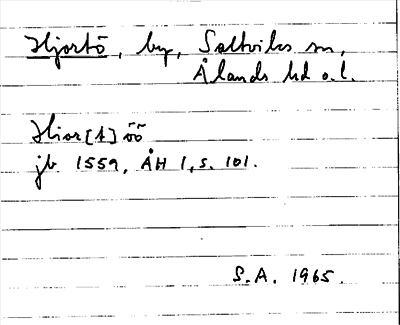 Hjortö, by, Saltviks sn,
Ålands hd o.l.
Hior[t] öö
jb 1559, ÅH 1, s. 101.
S.A. 1965.